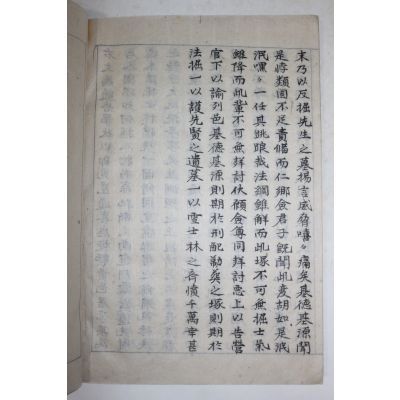 末乃以反掘先生之墓揚言威脅嘻〃痛矣基德基源聞
是悖類固不足責惟而仁鄉僉君子旣聞此变胡如是泯
泯嘿〃一任其跳踉哉法綱雖解而此塚不可無掘士氣
雖降而此輩不可無討伏願僉尊同䎸討惡上以告營
官下以諭列邑基德基源則期於刑配勒葬之塚則期於
法掘一以護先賢之遺墓一以雪士林之齊憤千萬幸甚